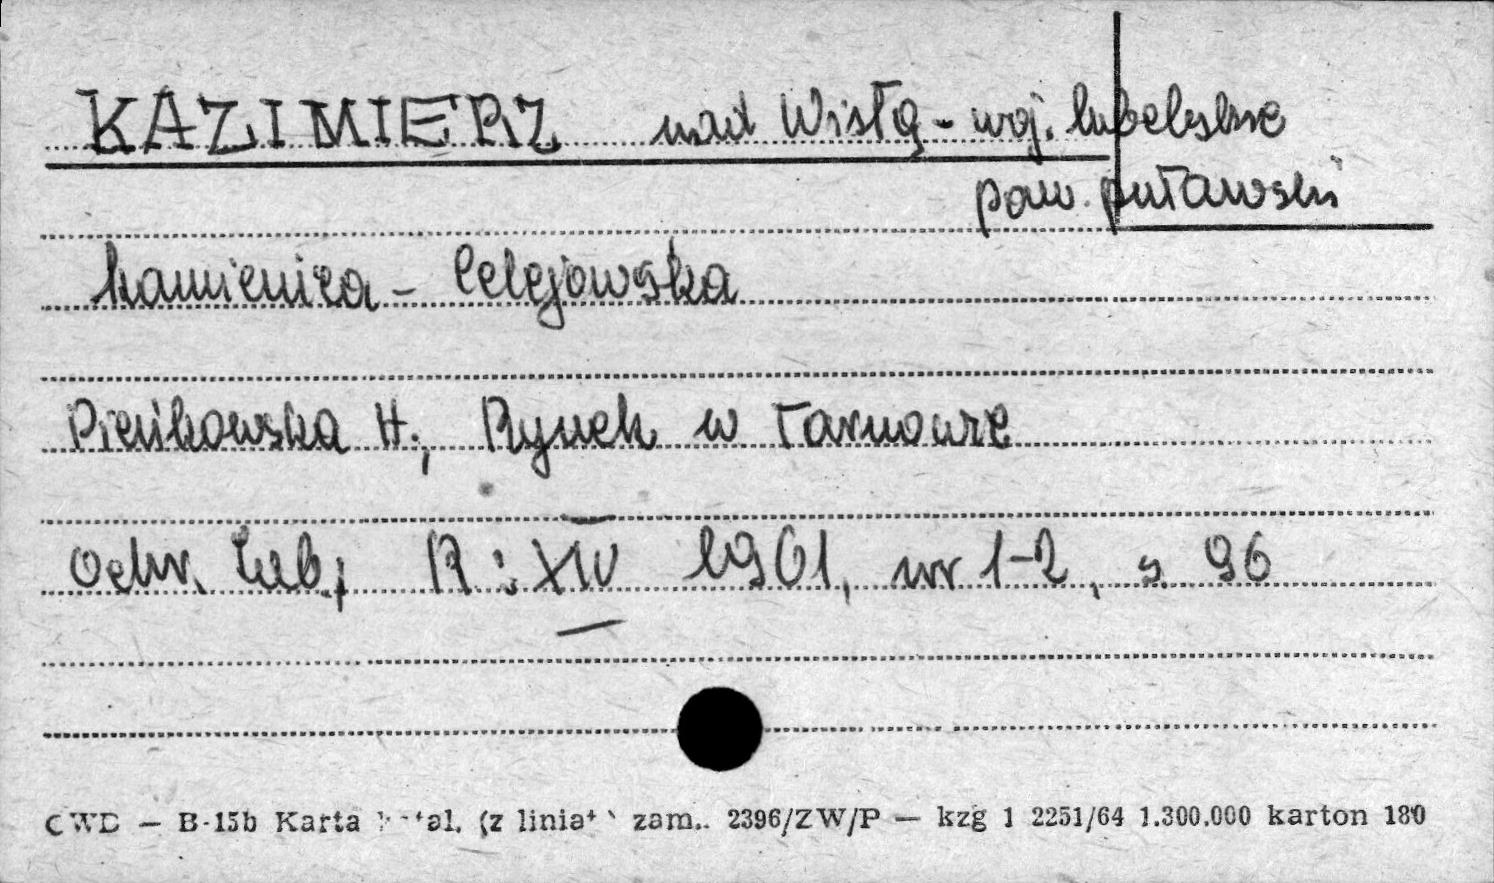 KAZIMIERZ nad Wisłą - woj. lubelskie
pow. puławski
kamienica - Celejowska
Pieńkowska H., Rynek w Tarnowie
Ochr. Zab., R: XIV 1961, nr 1-2, s. 96
CWD — B-15b Karta (z linia zam. 2396/ZW/P — kzg 1 2251/64 1.300.000 karton 180